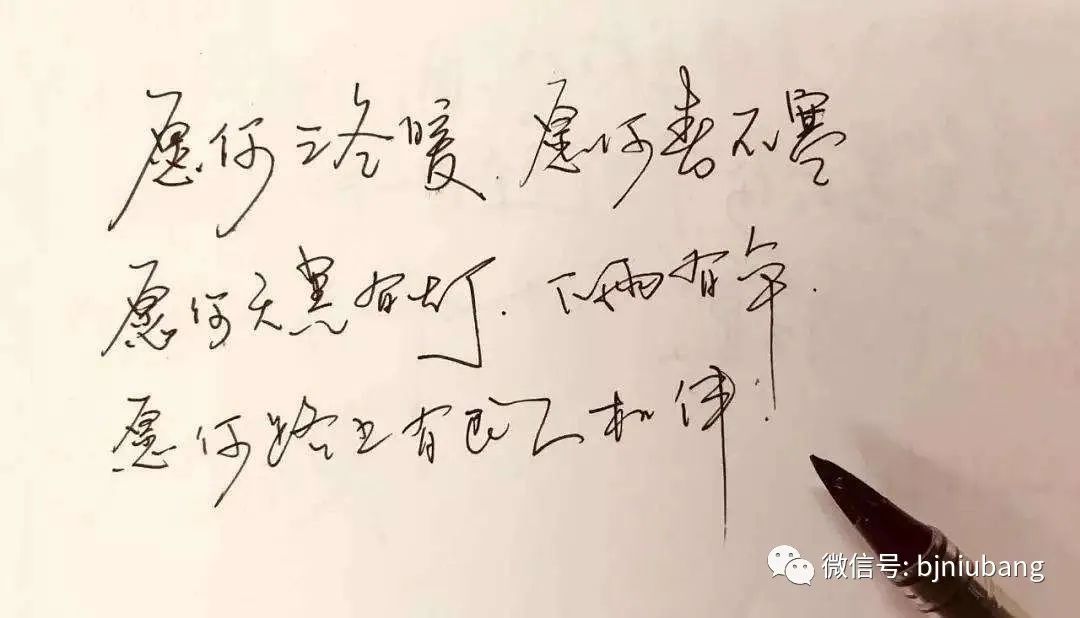 愿你三冬暖.愿你春不寒
愿你天黑有灯.下雨有伞.
愿你路上有良人相伴!
微信号: bjniubang